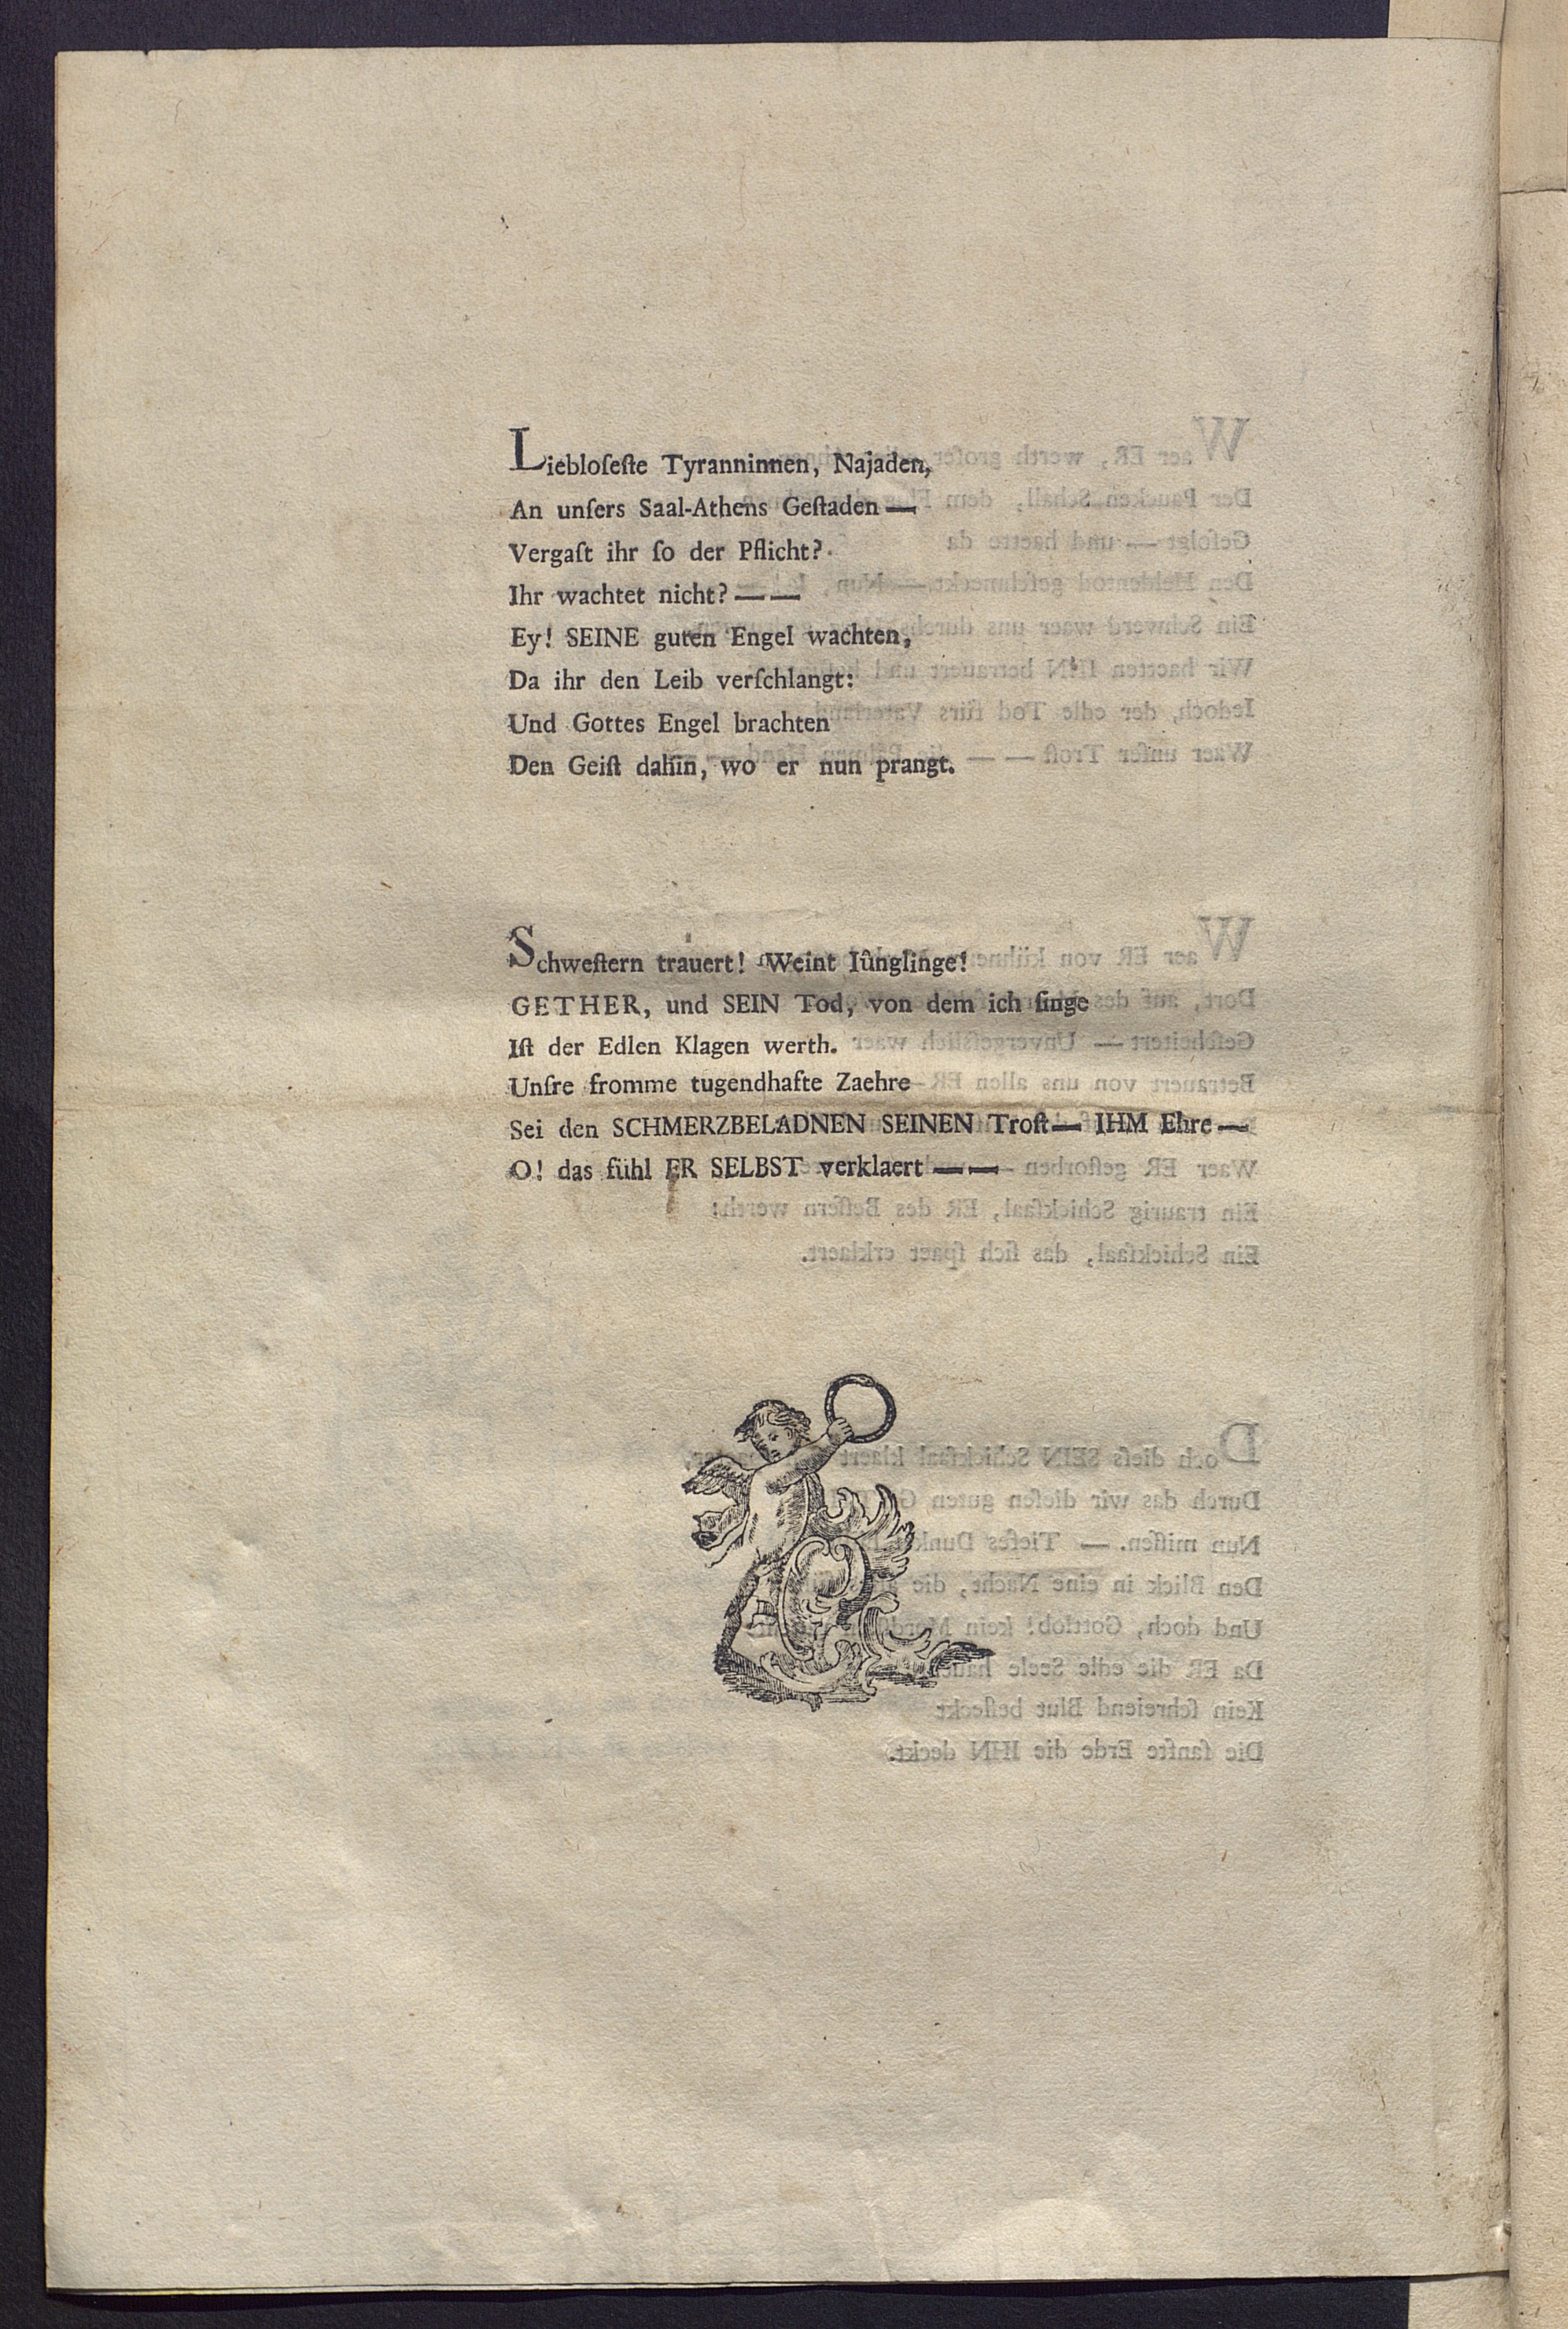 Liebloſeſte Tyranninnen, Najaden,
An unſers Saal-Athens Geſtaden —
Vergaſt ihr ſo der Pflicht?
Ihr wachtet nicht? — —
Ey! SEINE guten Engel wachten,
Da ihr den Leib verſchlangt:
Und Gottes Engel brachten
Den Geiſt dahin, wo er nun prangt.
Schweſtern trauert! Weint Iûnglinge!
GETHER, und SEIN Tod, von dem ich ſinge
Iſt der Edlen Klagen werth.
Unſre fromme tugendhafte Zaehre
Sei den SCHMERZBELADNEN SEINEN Troſt — IHM Ehre —
O! das fühl ER SELBST verklaert — —